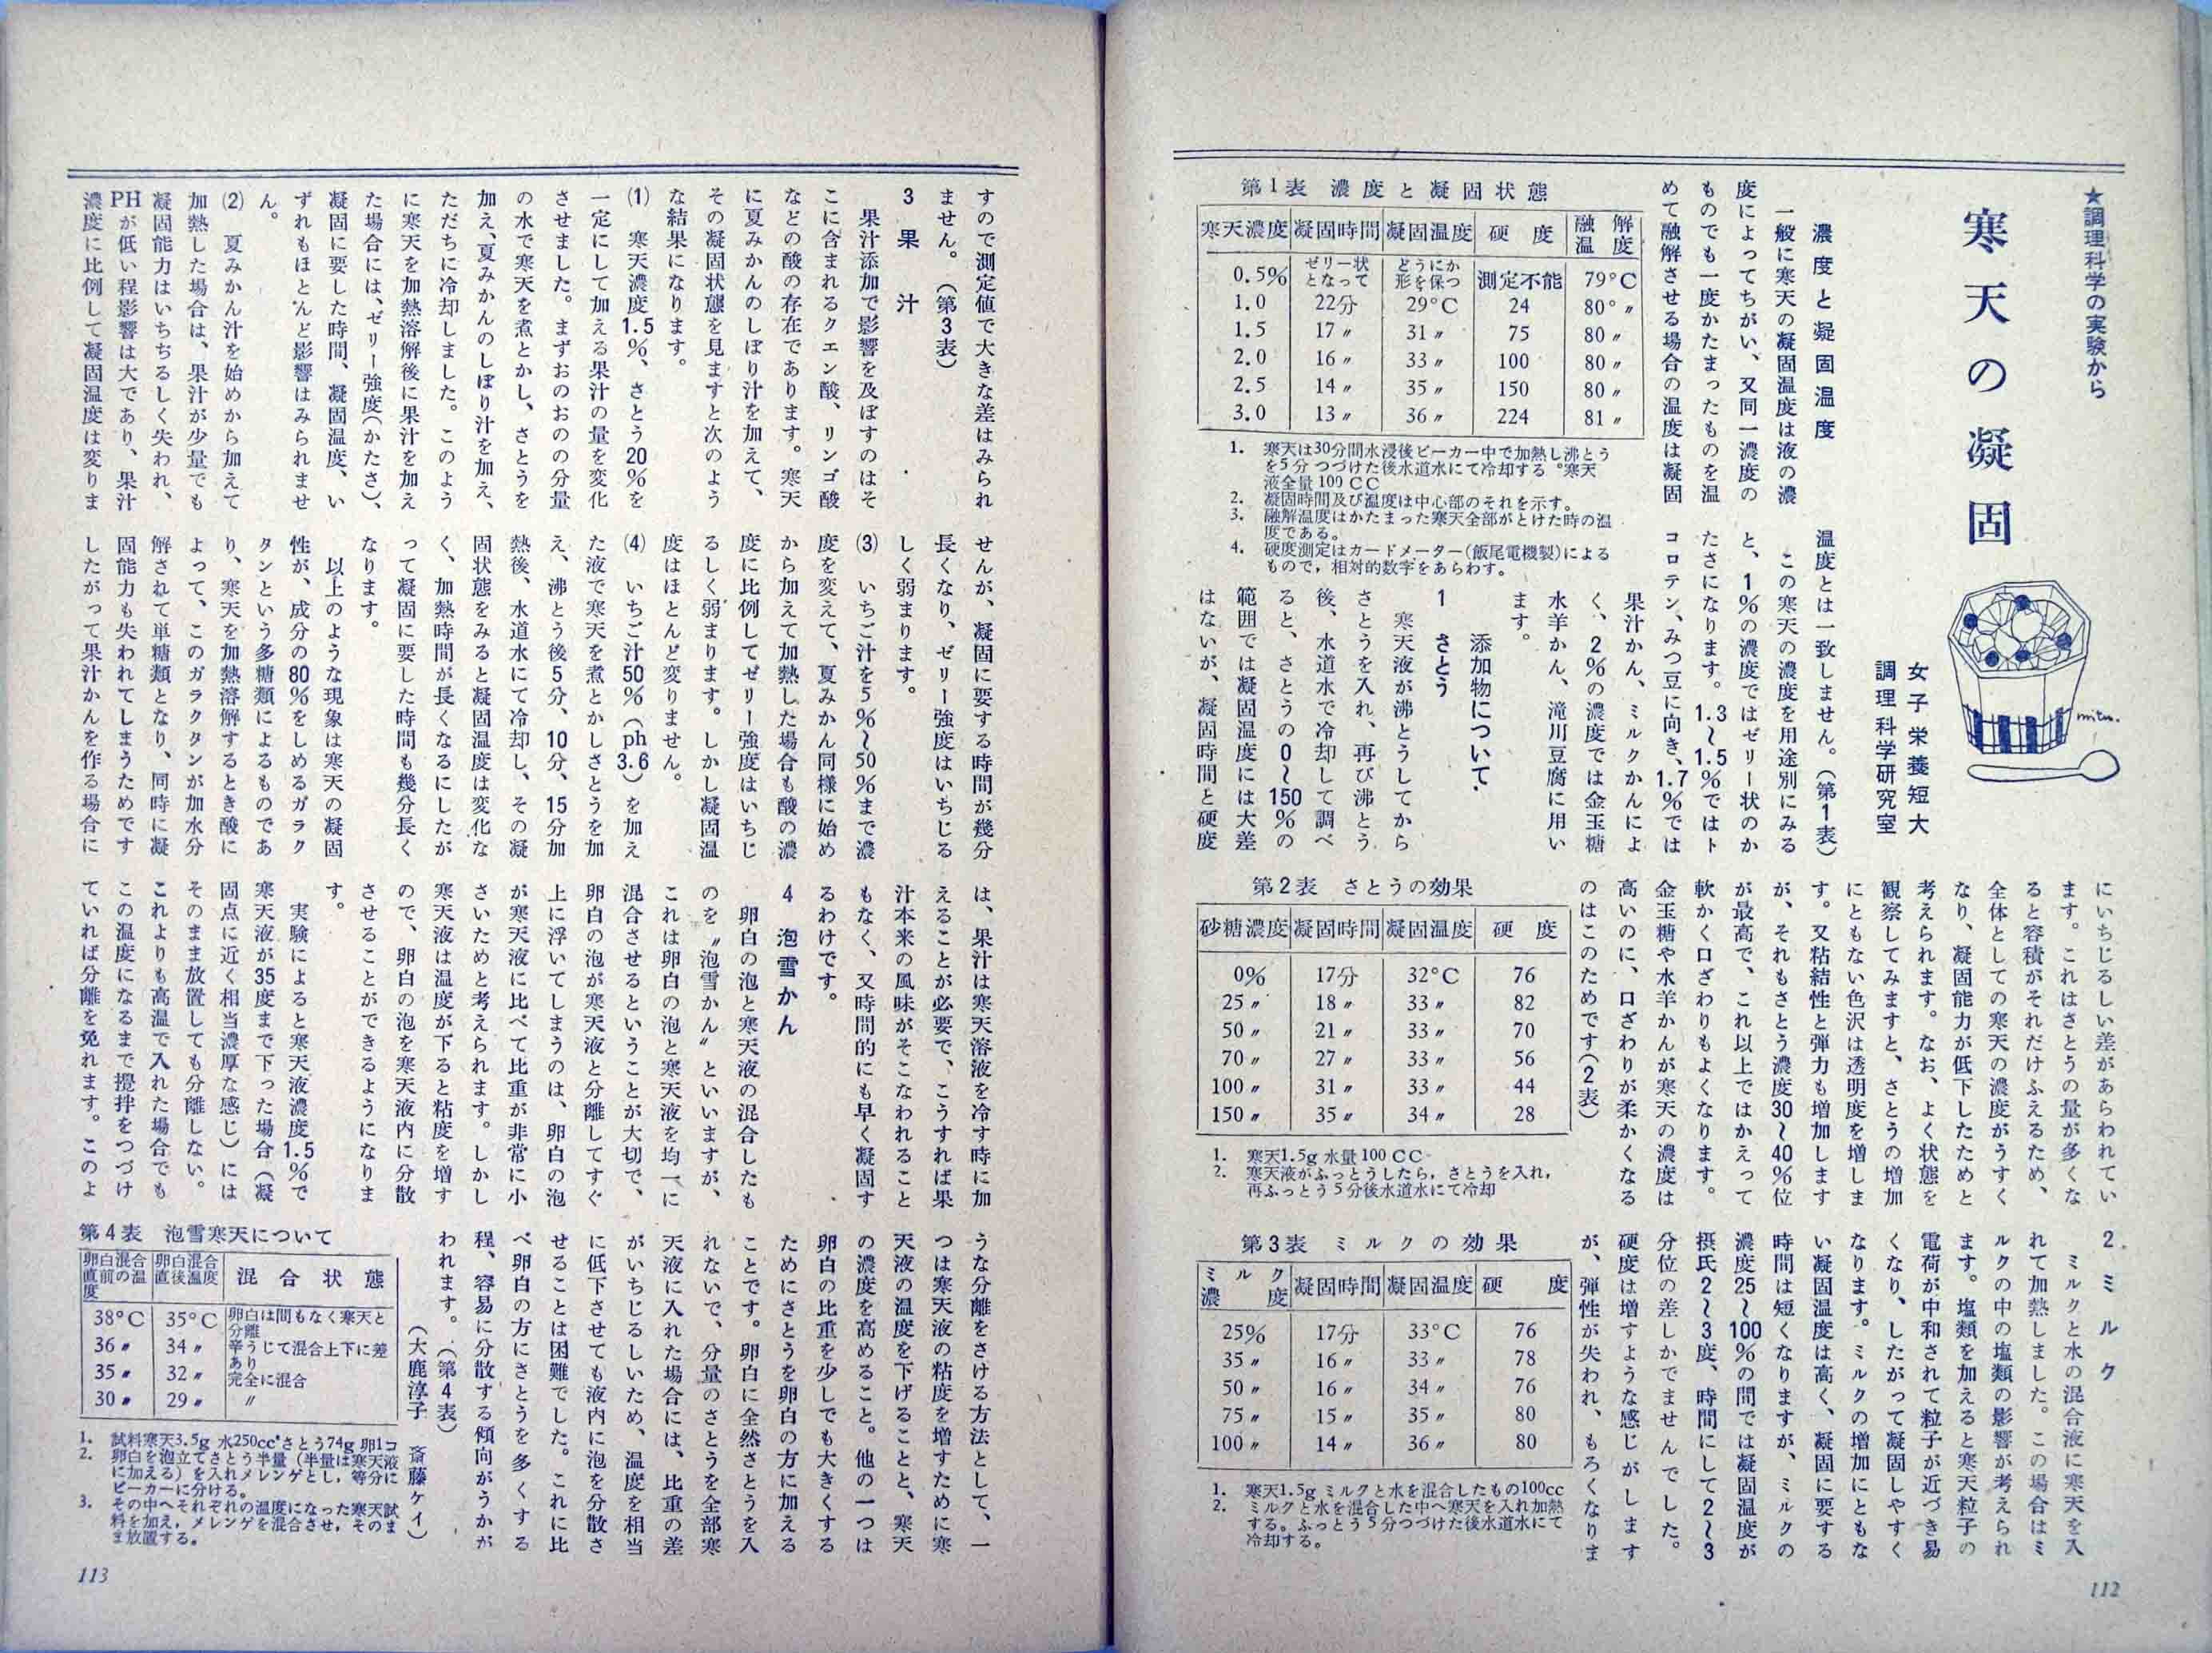 ★調理科学の実験から
寒天の凝固
女子栄養短大
調理科学研究室
mitu.
濃度と凝固温度
一般に寒天の凝固温度は液の濃
度によってちがい、又同一濃度の
ものでも一度かたまったものを温
めて融解させる場合の温度は凝固
温度とは一致しません。（第1表）
この寒天の濃度を用途別にみる
と、1％の濃度ではゼリー状のか
たさになります。1.3〜1.5％ではト
コロテン、みつ豆に向き、1.7％では
果汁かん、ミルクかんによ
く、2％の濃度では金玉糖
水羊かん、滝川豆腐に用い
ます。
添加物について
1 さとう
寒天液が沸とうしてから
さとうを入れ、再び沸とう
後、水道水で冷却して調べ
ると、さとうの0〜150％の
範囲では凝固温度には大差
はないが、凝固時間と硬度
にいちじるしい差があらわれてい
ます。これはさとうの量が多くな
ると容積がそれだけふえるため、
全体としての寒天の濃度がうすく
なり、凝固能力が低下したためと
考えられます。なお、よく状態を
観察してみますと、さとうの増加
にともない色沢は透明度を増しま
す。又粘結性と弾力も増加します
が、それもさとう濃度30〜40％位
が最高で、これ以上ではかえって
軟かく口ざわりもよくなります。
金玉糖や水羊かんが寒天の濃度は
高いのに、口ざわりが柔かくなる
のはこのためです（2表）
2. ミルク
ミルクと水の混合液に寒天を入
れて加熱しました。この場合はミ
ルクの中の塩類の影響が考えられ
ます。塩類を加えると寒天粒子の
電荷が中和されて粒子が近づき易
くなり、したがって凝固しやすく
なります。ミルクの増加にともな
い凝固温度は高く、凝固に要する
時間は短くなりますが、ミルクの
濃度25〜100％の間では凝固温度が
摂氏2〜3度、時間にして2〜3
分位の差しかでませんでした。
硬度は増すような感じがします
が、弾性が失われ、もろくなりま
第1表 濃度と凝固状態
寒天濃度 凝固時間 凝固温度 硬度 融解温度
0.5% ゼリー状となって どうにか形を保つ 測定不能 79°C
1.0 22分 29°C 24 80°〃
1.5 17〃 31〃 75 80〃
2.0 16〃 33〃 100 80〃
2.5 14〃 35〃 150 80〃
3.0 13〃 36〃 224 81〃
1. 寒天は30分間水浸後ビーカー中で加熱し沸とう
を5分つづけた後水道水にて冷却する。寒天
液全量100CC
2. 凝固時間及び温度は中心部のそれを示す。
3. 融解温度はかたまった寒天全部がとけた時の温
度である。
4. 硬度測定はカードメーター(飯尾電機製)による
もので，相対的数字をあらわす。
第2表 さとうの効果
砂糖濃度 凝固時間 凝固温度 硬度
0% 17分 32°C 76
25〃 18〃 33〃 82
50〃 21〃 33〃 70
70〃 27〃 33〃 56
100〃 31〃 33〃 44
150〃 35〃 34〃 28
1. 寒天1.5g 水量100CC
2. 寒天液がふっとうしたら，さとうを入れ，
再ふっとう5分後水道水にて冷却
第3表 ミルクの効果
ミルク濃度 凝固時間 凝固温度 硬度
25% 17分 33°C 76
35〃 16〃 33〃 78
50〃 16〃 34〃 76
75〃 15〃 35〃 80
100〃 14〃 36〃 80
1. 寒天1.5g ミルクと水を混合したもの100cc
2. ミルクと水を混合した中へ寒天を入れ加熱
する。ふっとう5分つづけた後水道水にて
冷却する。
112
すので測定値で大きな差はみられ
ません。（第3表）
3 果汁
果汁添加で影響を及ぼすのはそ
こに含まれるクエン酸、リンゴ酸
などの酸の存在であります。寒天
に夏みかんのしぼり汁を加えて、
その凝固状態を見ますと次のよう
な結果になります。
(1) 寒天濃度1.5％、さとう20％を
一定にして加える果汁の量を変化
させました。まずおのおのの分量
の水で寒天を煮とかし、さとうを
加え、夏みかんのしぼり汁を加え、
ただちに冷却しました。このよう
に寒天を加熱溶解後に果汁を加え
た場合には、ゼリー強度（かたさ）、
凝固に要した時間、凝固温度、い
ずれもほとんど影響はみられませ
ん。
(2) 夏みかん汁を始めから加えて
加熱した場合は、果汁が少量でも
凝固能力はいちぢるしく失われ、
PHが低い程影響は大であり、果汁
濃度に比例して凝固温度は変りま
せんが、凝固に要する時間が幾分
長くなり、ゼリー強度はいちじる
しく弱まります。
(3) いちご汁を5％〜50％まで濃
度を変えて、夏みかん同様に始め
から加えて加熱した場合も酸の濃
度に比例してゼリー強度はいちじ
るしく弱まります。しかし凝固温
度はほとんど変りません。
(4) いちご汁50％（ph3.6）を加え
た液で寒天を煮とかしさとうを加
え、沸とう後5分、10分、15分加
熱後、水道水にて冷却し、その凝
固状態をみると凝固温度は変化な
く、加熱時間が長くなるにしたが
って凝固に要した時間も幾分長く
なります。
以上のような現象は寒天の凝固
性が、成分の80％をしめるガラク
タンという多糖類によるものであ
り、寒天を加熱溶解するとき酸に
よって、このガラクタンが加水分
解されて単糖類となり、同時に凝
固能力も失われてしまうためです
したがって果汁かんを作る場合に
は、果汁は寒天溶液を冷す時に加
えることが必要で、こうすれば果
汁本来の風味がそこなわれること
もなく、又時間的にも早く凝固す
るわけです。
4 泡雪かん
卵白の泡と寒天液の混合したも
のを〝泡雪かん〟といいますが、
これは卵白の泡と寒天液を均一に
混合させるということが大切で、
卵白の泡が寒天液と分離してすぐ
上に浮いてしまうのは、卵白の泡
が寒天液に比べて比重が非常に小
さいためと考えられます。しかし
寒天液は温度が下ると粘度を増す
ので、卵白の泡を寒天液内に分散
させることができるようになりま
す。
実験によると寒天液濃度1.5％で
寒天液が35度まで下った場合（凝
固点に近く相当濃厚な感じ）には
そのまま放置しても分離しない。
これよりも高温で入れた場合でも
この温度になるまで攪拌をつづけ
ていれば分離を免れます。このよ
うな分離をさける方法として、一
つは寒天液の粘度を増すために寒
天液の温度を下げることと、寒天
の濃度を高めること。他の一つは
卵白の比重を少しでも大きくする
ためにさとうを卵白の方に加える
ことです。卵白に全然さとうを入
れないで、分量のさとうを全部寒
天液に入れた場合には、比重の差
がいちじるしいため、温度を相当
に低下させても液内に泡を分散さ
せることは困難でした。これに比
べ卵白の方にさとうを多くする
程、容易に分散する傾向がうかが
われます。（第4表）
（大鹿淳子 斎藤ケイ）
第4表 泡雪寒天について
卵白混合直前の温度 卵白混合直後温度 混合状態
38°C 35°C 卵白は間もなく寒天と分離
36〃 34〃 辛うじて混合上下に差あり
35〃 32〃 完全に混合
30〃 29〃 〃
1. 試料寒天3.5g 水250cc さとう74g 卵1コ
2. 卵白を泡立てさとう半量（半量は寒天液
に加える）を入れメレンゲとし，等分に
ビーカーに分ける。
3. その中へそれぞれの温度になった寒天試
料を加え，メレンゲを混合させ，そのま
ま放置する。
113